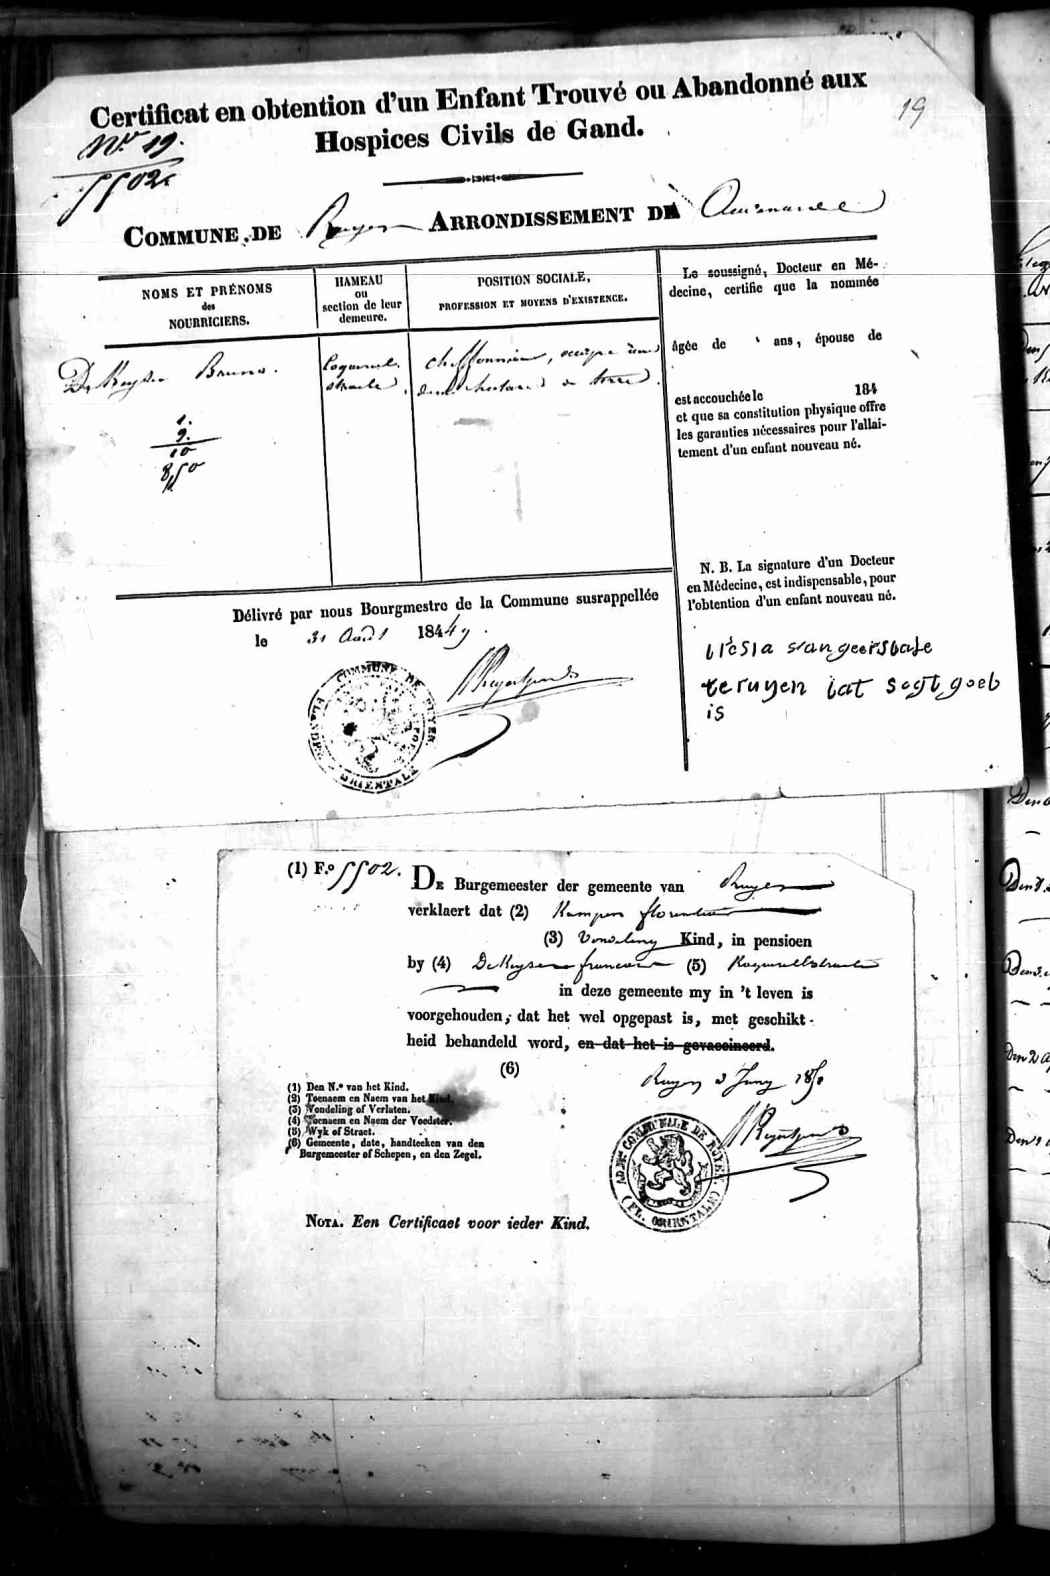 Certificat en obtention d'un Enfant Trouvé ou Abandonné aux
Hospices Civils de Gand.
19
N° 19.
5502
COMMUNE DE Ruyen ARRONDISSEMENT D
NOMS ET PRÉNOMS
des
NOURRICIERS.
HAMEAU
ou
section de leur
demeure.
POSITION SOCIALE,
PROFESSION ET MOYENS D'EXISTENCE.
De Keyser Bruno.
straete
chiffonnier, occupe un
demi hectare de terre.
1.
9.
10
850
Le soussigné, Docteur en Mé-
decine, certifie que la nommée
âgée de ans, épouse de
est accouchée le 184
et que sa constitution physique offre
les garanties nécessaires pour l'allai-
tement d'un enfant nouveau né.
N. B. La signature d'un Docteur
en Médecine, est indispensable, pour
l'obtention d'un enfant nouveau né.
Délivré par nous Bourgmestre de la Commune susrappellée
le 31 Août 1849.
COMMUNE DE RUYEN
FLANDRE ORIENTALE
teruyen tat segt goeb
is
(1) F.o 5502.
DE Burgemeester der gemeente van Ruyen
verklaert dat (2) Kampen florentin
(3) Vondeling Kind, in pensioen
by (4) De Keyser francois (5)
in deze gemeente my in 't leven is
voorgehouden, dat het wel opgepast is, met geschikt-
heid behandeld word, en dat het is gevaccineerd.
(6)
Ruyen 3 Juny 1850
(1) Den N.o van het Kind.
(2) Toenaem en Naem van het Kind.
(3) Vondeling of Verlaten.
(4) Toenaem en Naem der Voedster.
(5) Wyk of Straet.
(6) Gemeente, date, handteeken van den
Burgemeester of Schepen, en den Zegel.
ADM.on COMMUNALE DE RUYEN
(FL. ORIENTALE)
NOTA. Een Certificaet voor ieder Kind.